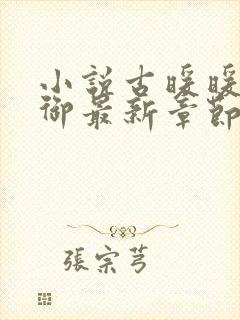 小説古暖暖
御最新章節
張宗芎